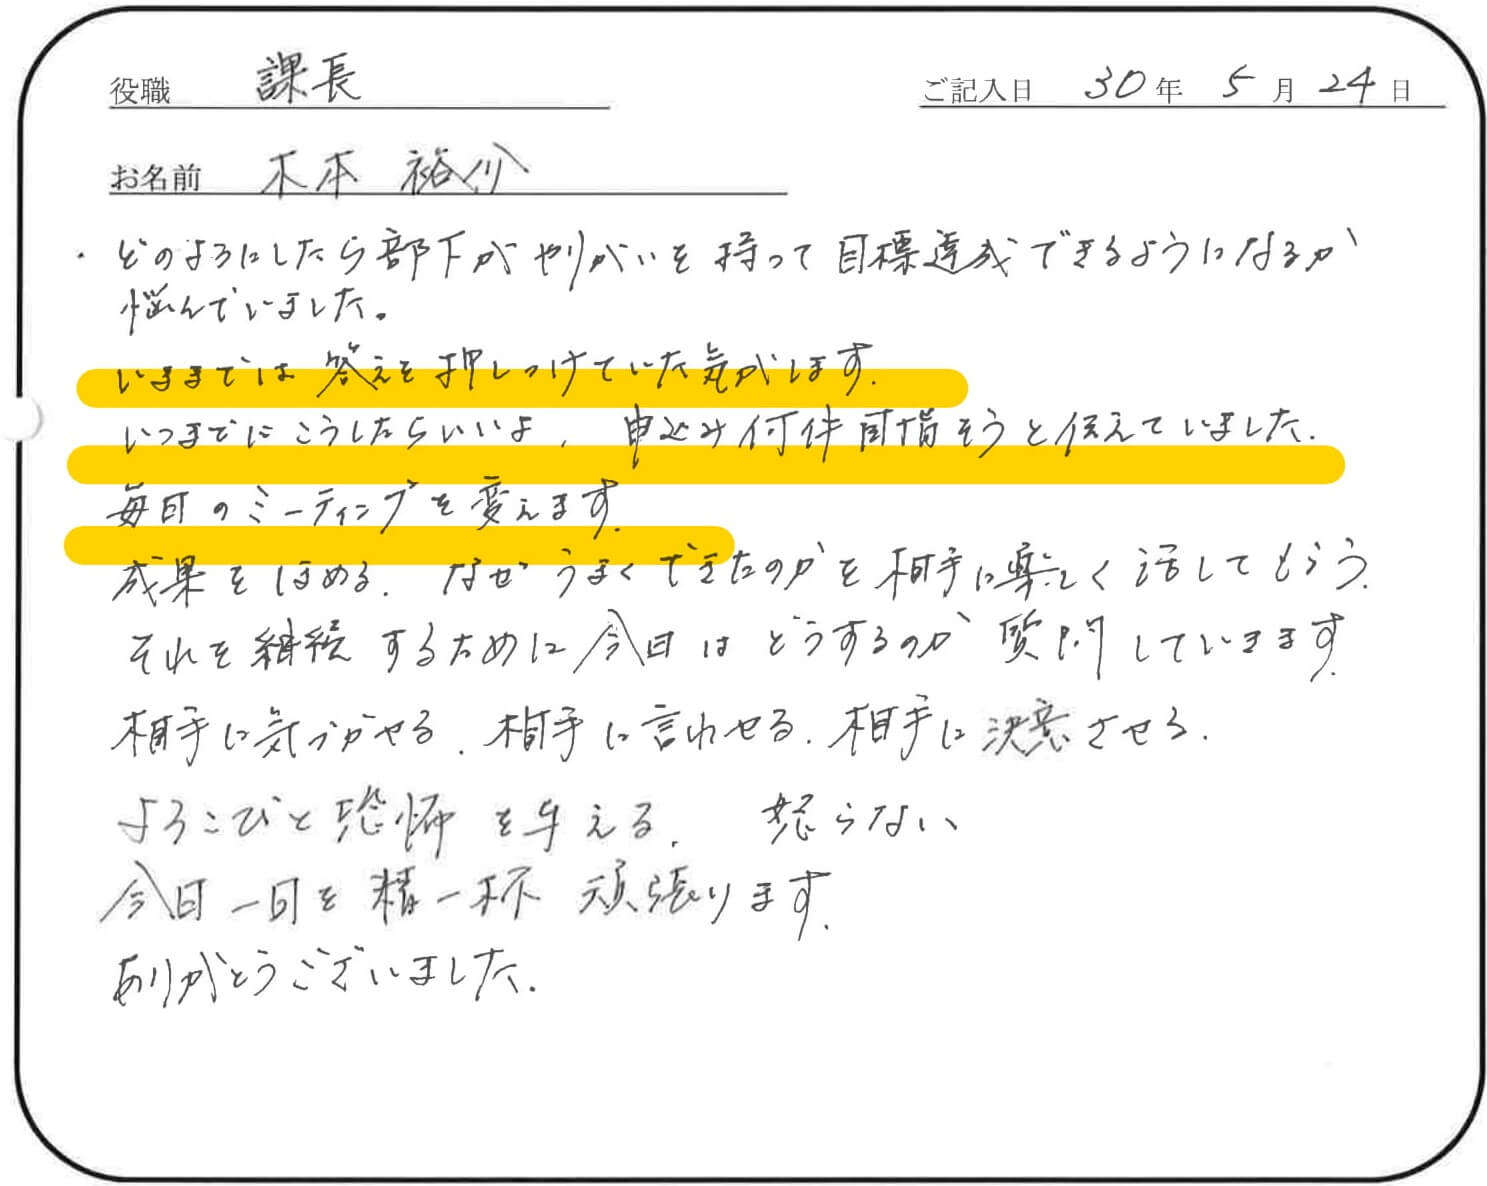 役職 課長
ご記入日 30年 5月 24日
お名前 木本 裕介
・どのようにしたら部下がやりがいを持って目標達成できるようになるか
悩んでいました。
いままでは答えを押しつけていた気がします.
いつまでにこうしたらいいよ, 申込み何件目指そうと伝えていました.
毎日のミーティングを変えます.
成果をほめる. なぜうまくできたのかを相手に楽しく話してもらう.
それを継続するために今日はどうするのか質問していきます.
相手に気づかせる. 相手に言わせる. 相手に決意させる.
よろこびと恐怖を与える. 怒らない
今日一日を精一杯頑張ります.
ありがとうございました.